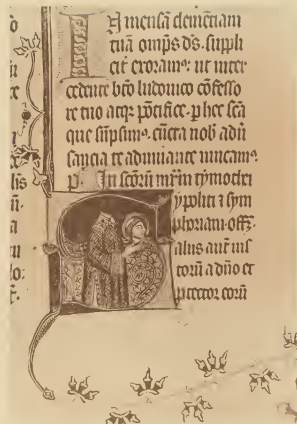 I m̄ensā clemenciam
tuā om̄ps ds̄. suppli
cit̄ exoramꝰ: ut inter
cedente btō ludouico cōfesso
re tuo atqꝫ pōtifice. p hec scā
que sūpsimꝰ. cūcta nob̄ adū
sancia te adiuuante uincamꝰ.
In scōrū mr̄m tymothei
ypoliti ⁊ sym
phoriani. offꝫ.
Salus aut̄ ius
torū a dn̄o et
ptector eorū